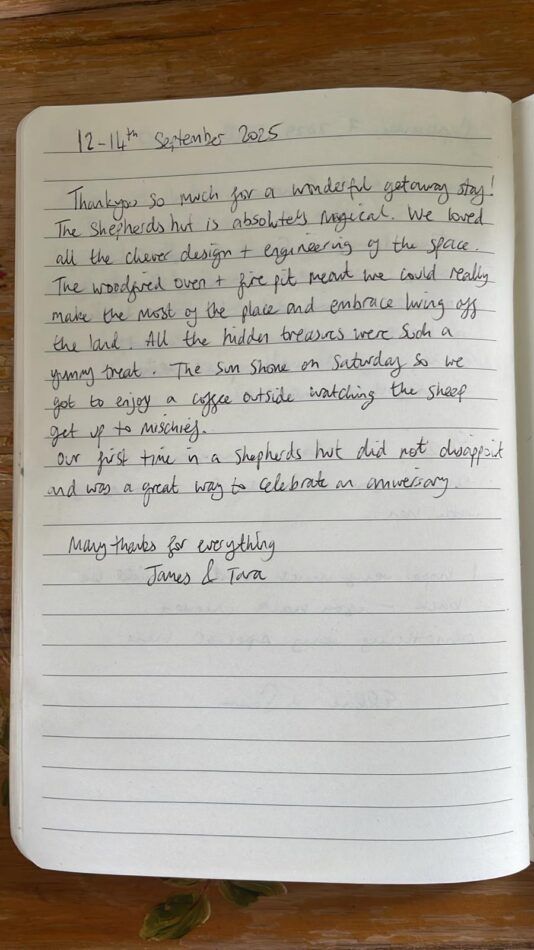 12-14th September 2025
Thankyou so much for a wonderful getaway stay!
The Shepherds hut is absolutely magical. We loved
all the clever design + engineering of the space.
The woodfired oven + fire pit meant we could really
make the most of the place and embrace living off
the land. All the hidden treasures were such a
yummy treat. The sun shone on Saturday so we
got to enjoy a coffee outside watching the sheep
get up to mischief.
Our first time in a shepherds hut did not disappoint
and was a great way to celebrate an anniversary.
Many thanks for everything
James & Tara